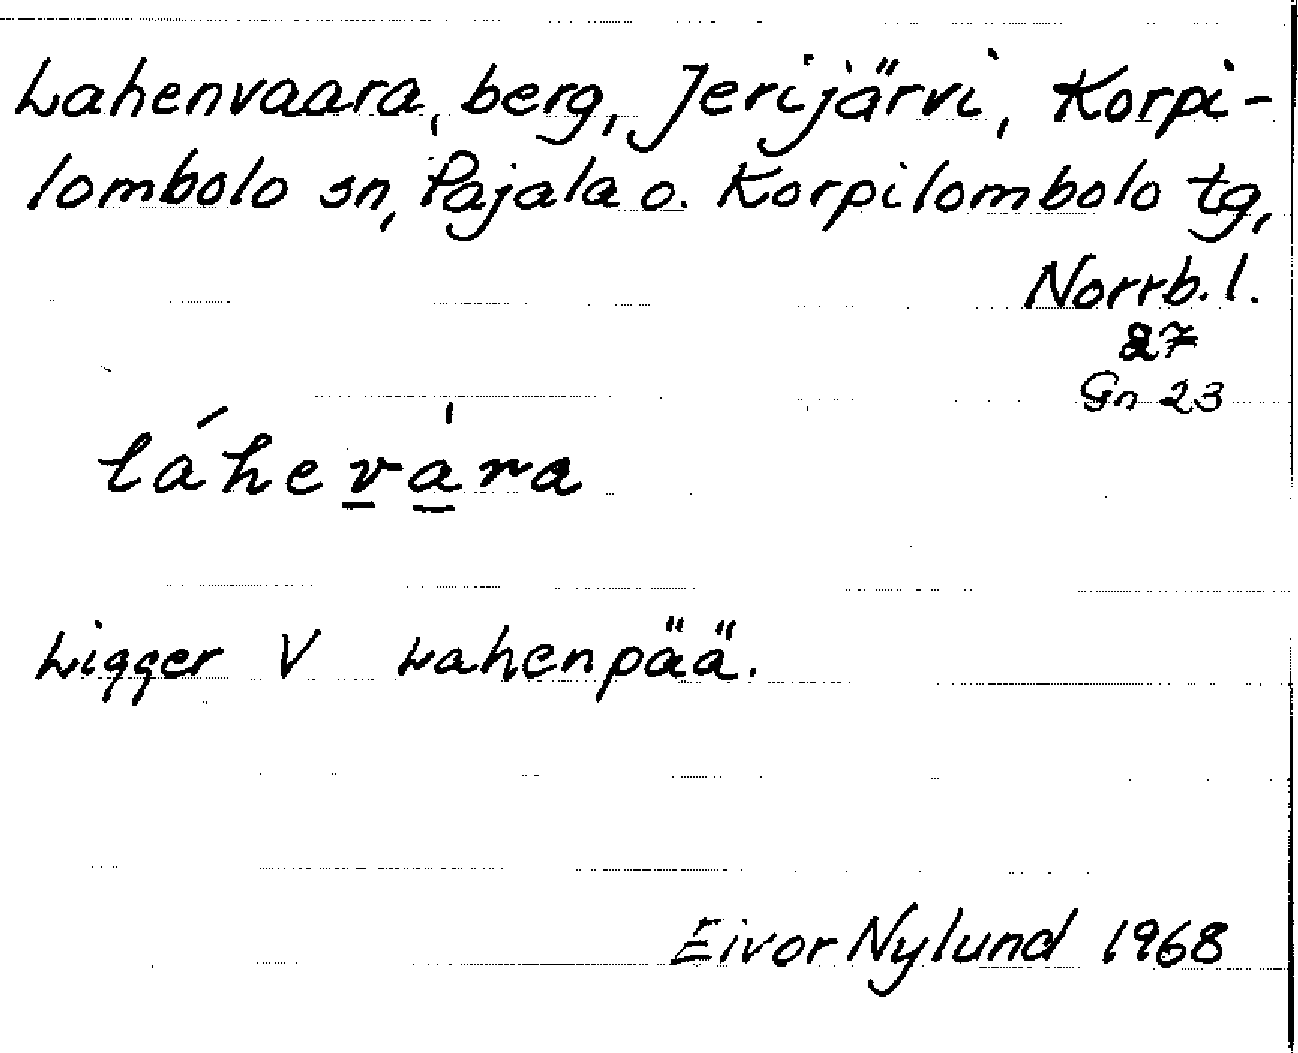 Lahenvaara, berg, Jerijärvi, Korpi-
lombolo sn, Pajala o. Korpilombolo tg,
Norrb. l.
27
Gn 23
láhevàra
Ligger V Lahenpää.
Eivor Nylund 1968